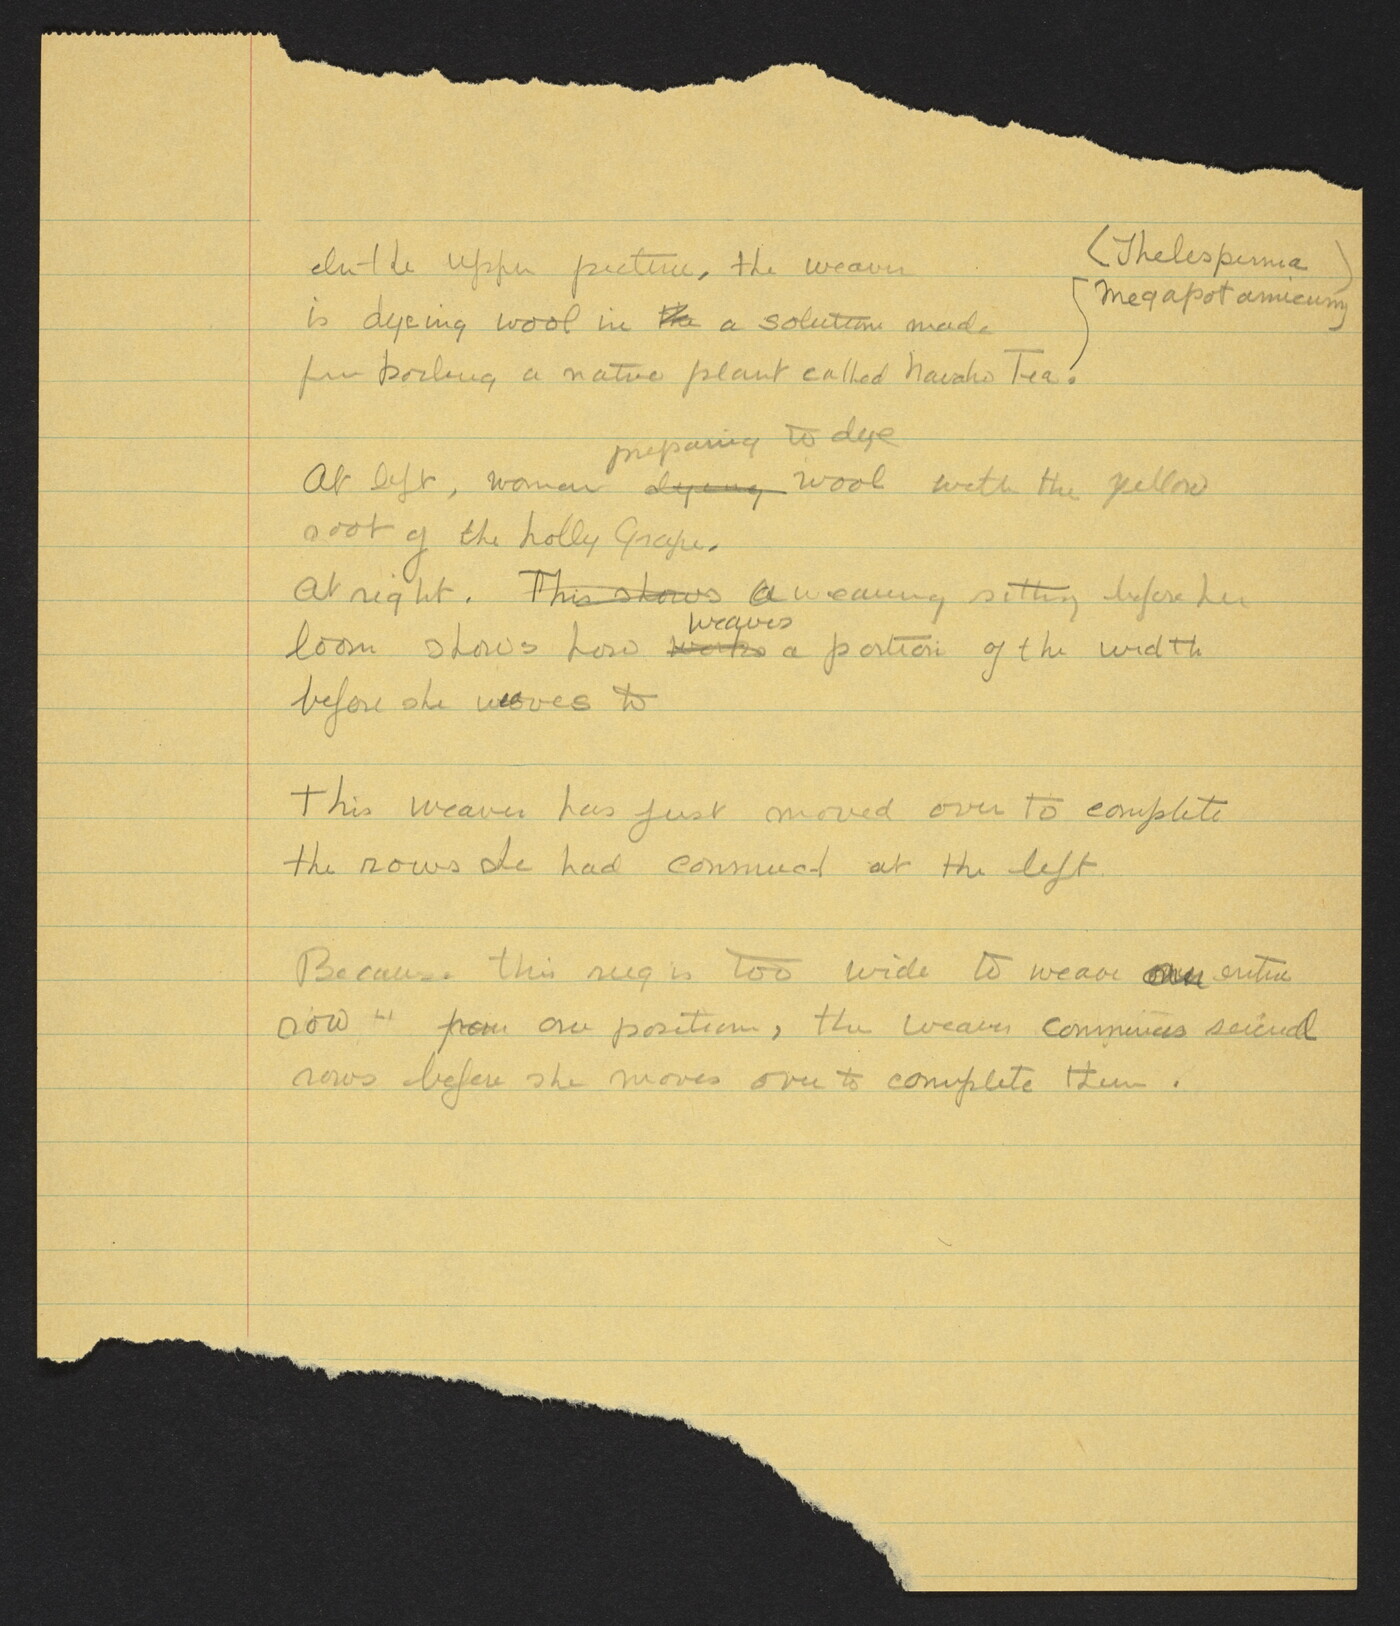 In the upper picture, the weaver
(Thelespermia
megapotamicum)
is dyeing wool in the a solution made
from boiling a native plant called Navaho Tea.
preparing to dye
At left, woman dyeing wool with the yellow
root of the holly Grape.
At right. This shows a weaving sitting before her
weaves
loom shows how works a portion of the width
before she moves to
This weaver has just moved over to complete
the rows she had commenced at the left.
Because this rug is too wide to weave an entire
row from one position, the weaver commences several
rows before she moves over to complete them.